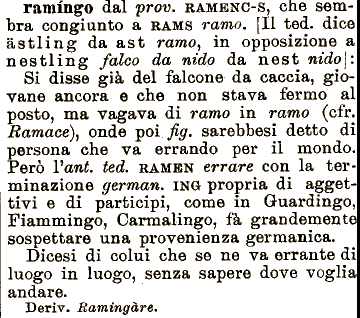 ramíngo dal prov. RAMENC-S, che sem-
bra congiunto a RAMS ramo. [Il ted. dice
ästling da ast ramo, in opposizione a
nestling falco da nido da nest nido]:
Si disse già del falcone da caccia, gio-
vane ancora e che non stava fermo al
posto, ma vagava di ramo in ramo (cfr.
Ramace), onde poi fig. sarebbesi detto di
persona che va errando per il mondo.
Però l'ant. ted. RAMEN errare con la ter-
minazione german. ING propria di agget-
tivi e di participi, come in Guardingo,
Fiammingo, Carmalingo, fà grandemente
sospettare una provenienza germanica.
Dicesi di colui che se ne va errante di
luogo in luogo, senza sapere dove voglia
andare.
Deriv. Ramingàre.